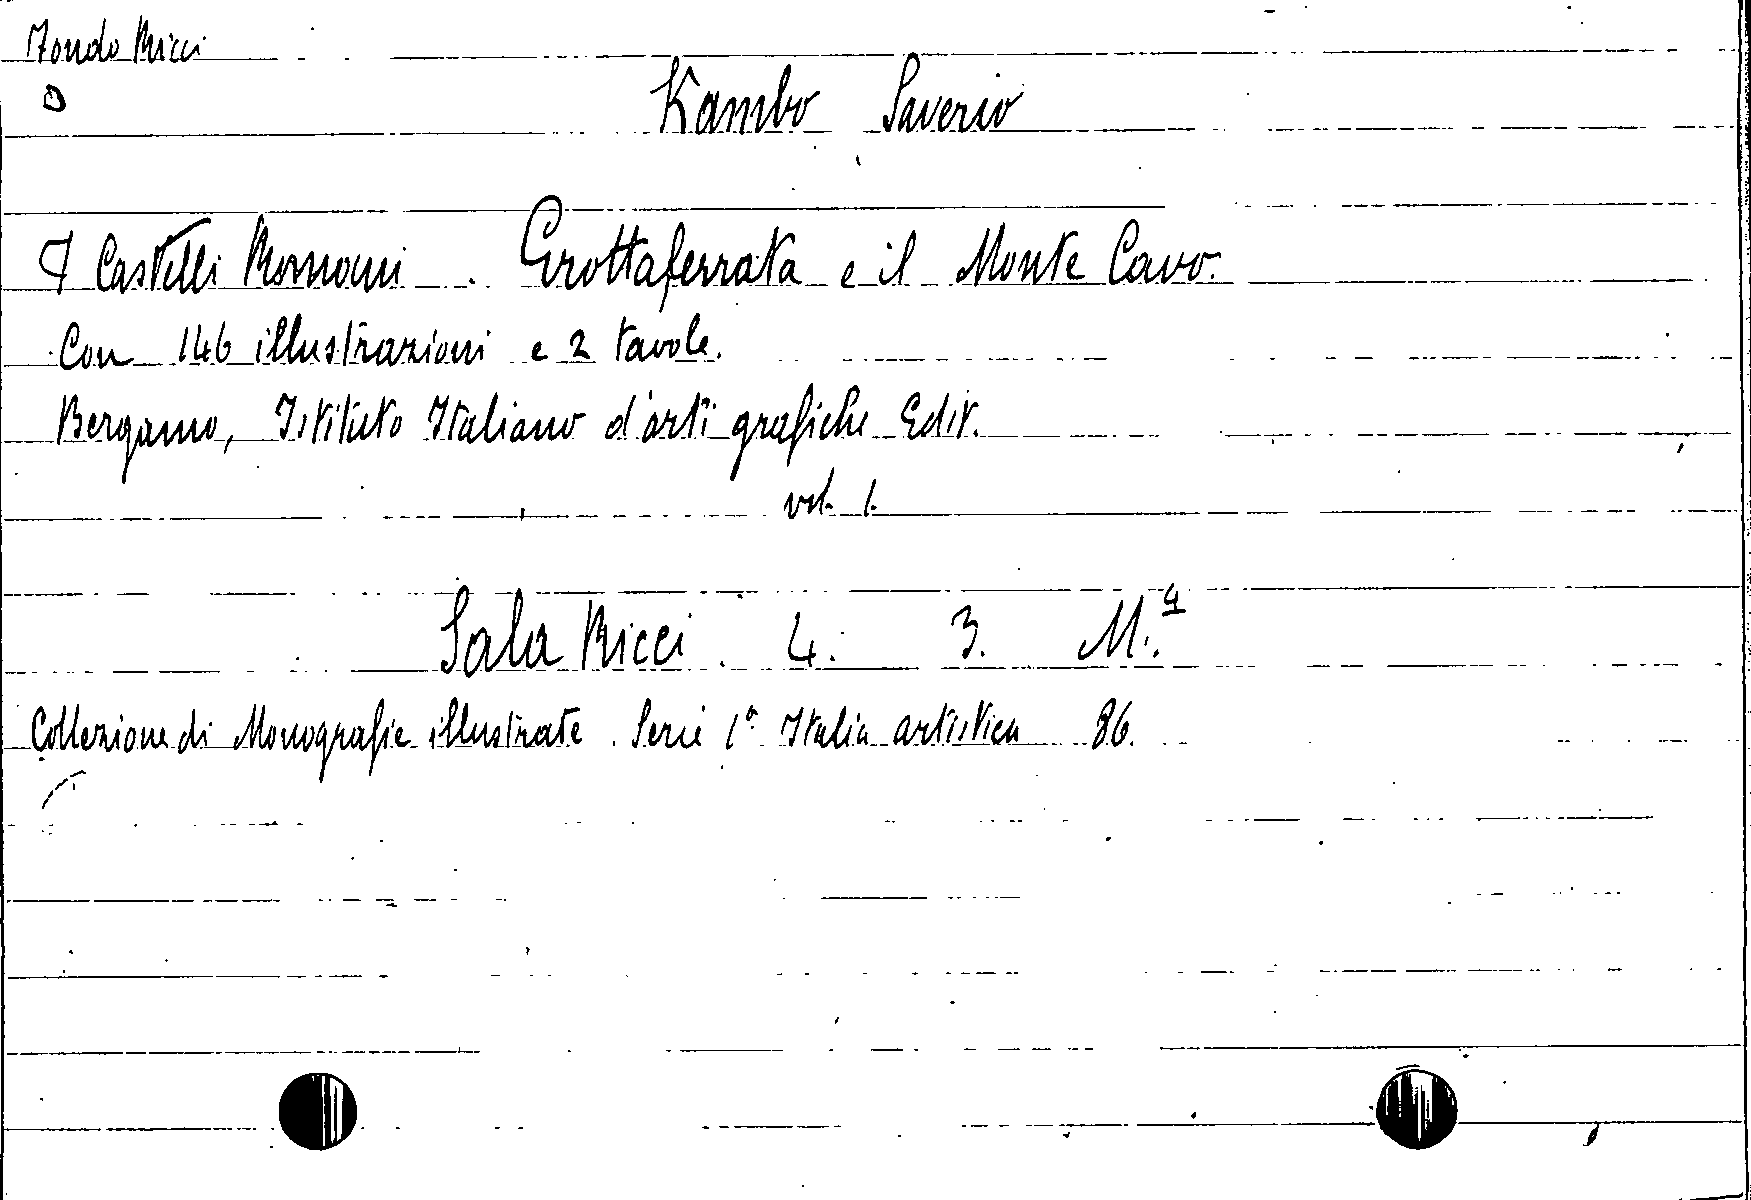 Fondo Ricci
Kambo Saverio
I Castelli Romani. Grottaferrata e il Monte Cavo.
Con 146 illustrazioni e 2 tavole.
Bergamo, Istituto Italiano d'arti grafiche Edit.
vol. 1.
Sala Ricci. 4. 3. M.4
Collezione di Monografie illustrate. Serie 1ª Italia artistica 86.